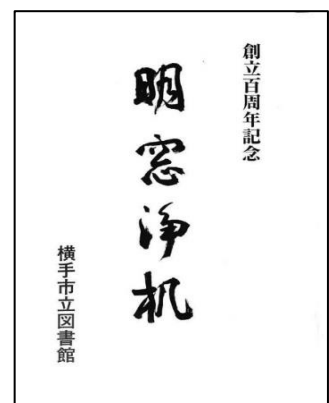 創立百周年記念
明窓浄机
横手市立図書館